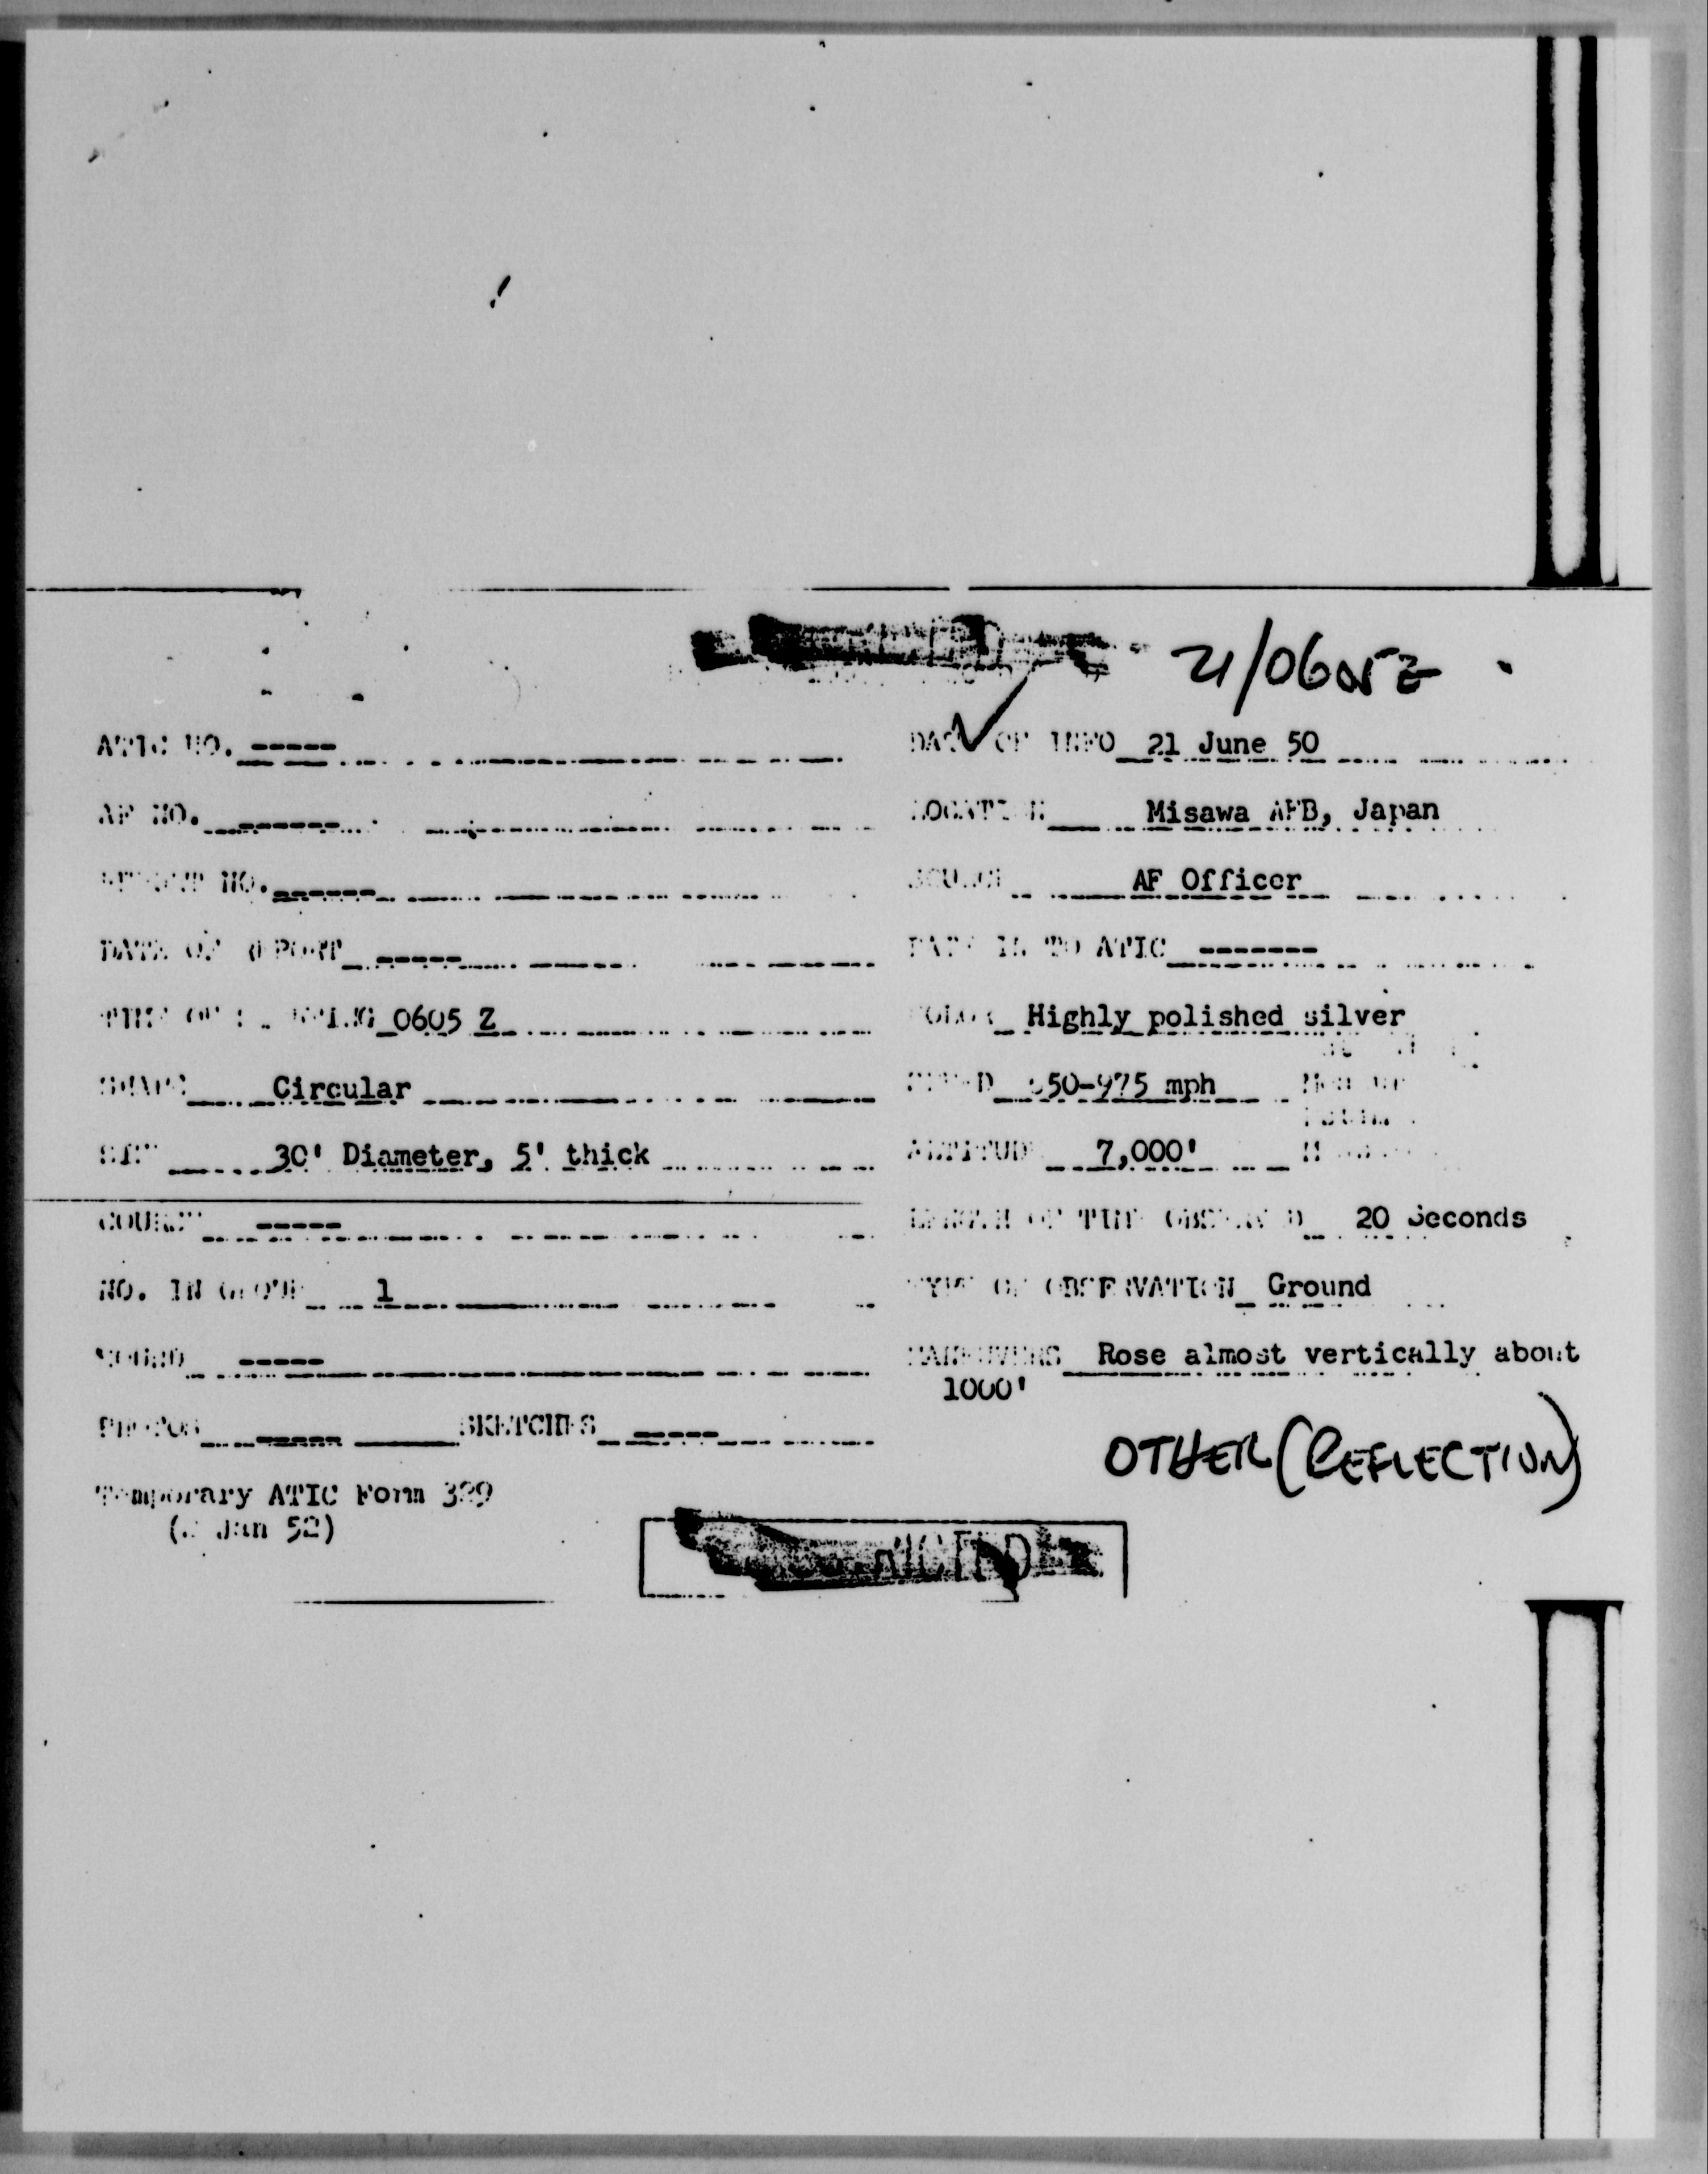 21/0605Z
ATIC NO. ----- DATE OF INFO 21 June 50
AF NO. ------ LOCATION Misawa AFB, Japan
REPORT NO. ------ SOURCE AF Officer
DATE OF REPORT ----- DATE IN TO ATIC -------
TIME OF SIGHTING 0605 Z COLOR Highly polished silver
SHAPE Circular SPEED 50-975 mph
SIZE 30' Diameter, 5' thick ALTITUDE 7,000'
COURSE ----- LENGTH OF TIME OBSERVED 20 Seconds
NO. IN GROUP 1 TYPE OF OBSERVATION Ground
SOUND ----- MANEUVERS Rose almost vertically about
1000'
PHOTOS ----- SKETCHES -----
OTHER (REFLECTION)
Temporary ATIC Form 329
( Jan 52)